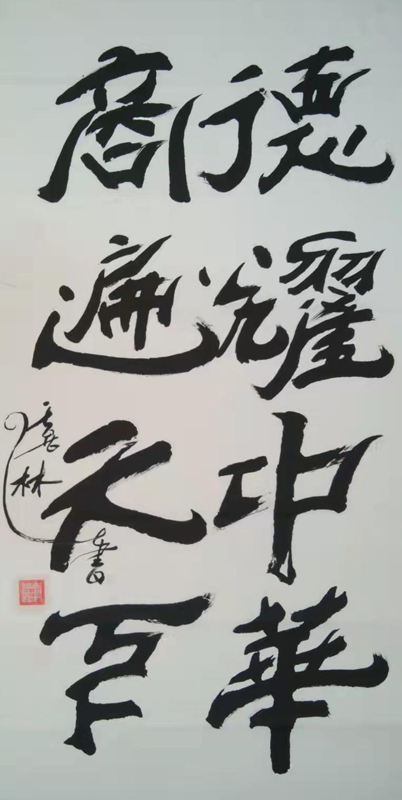 德耀中華
商遍天下
林書